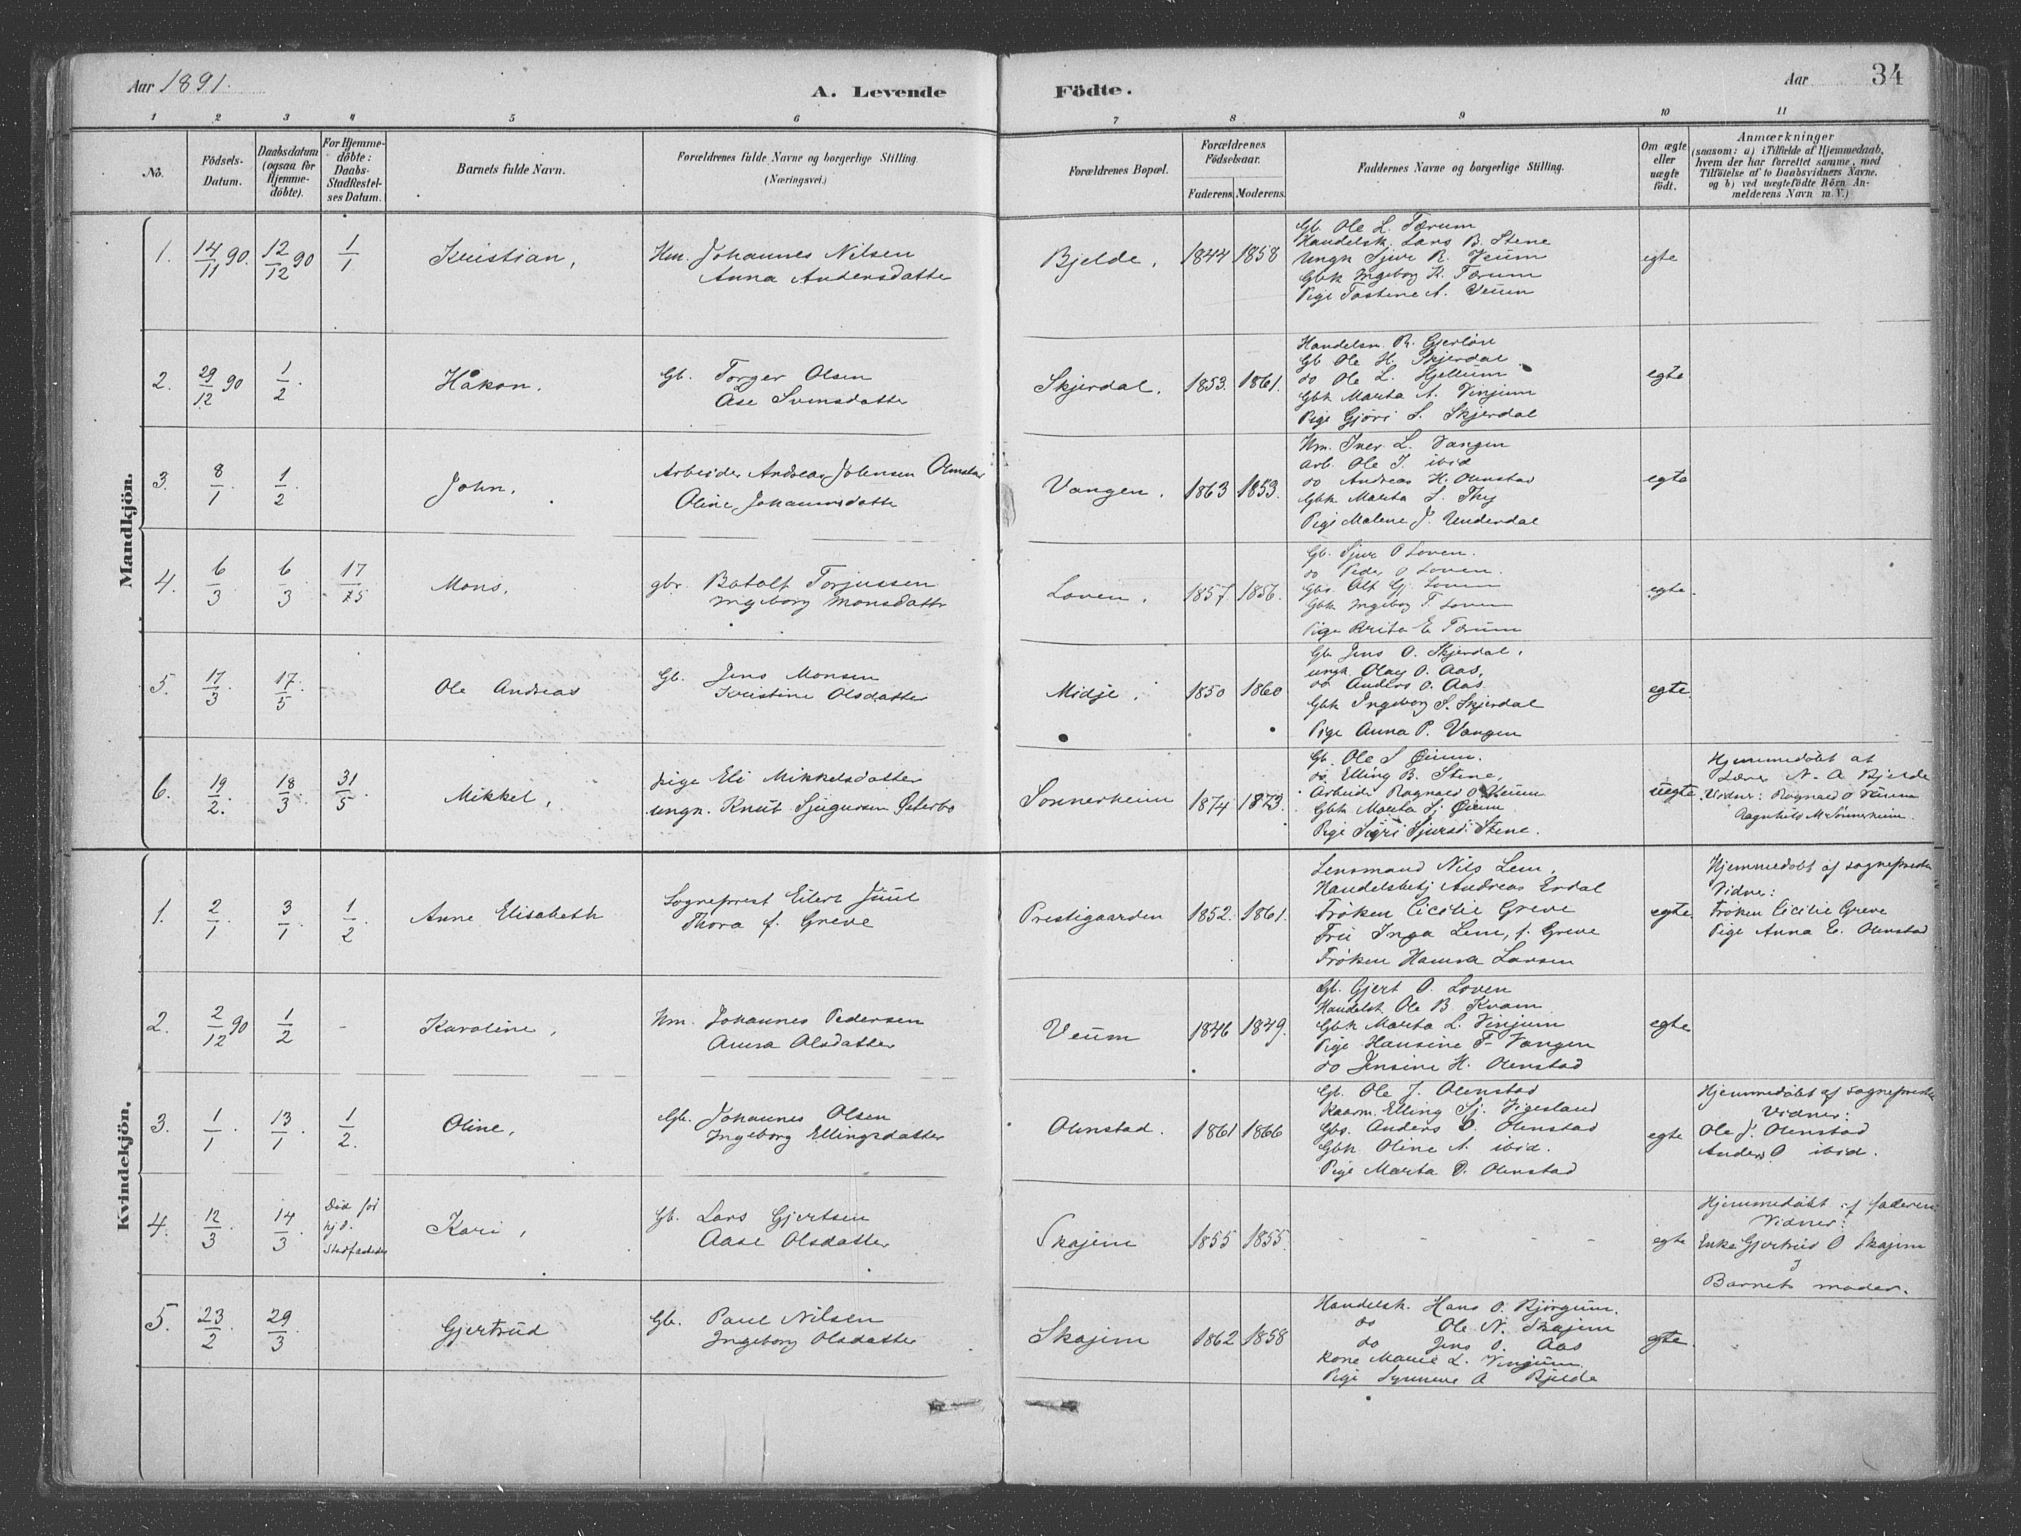 Aar 1891.
A. Levende
Födte.
Aar
34
1 2 3 4 5 6 7 8 9 10 11
No.
Födsels-
Datum.
Daabsdatum
(ogsaa for
Hjemme-
döbte).
For Hjemme-
döbte:
Daabs-
Stadfestel-
ses Datum.
Barnets fulde Navn.
Forældrenes fulde Navne og borgerlige Stilling.
(Næringsvei.)
Forældrenes Bopæl.
Forældrenes
Födselsaar.
Faderens. Moderens.
Faddernes Navne og borgerlige Stilling.
Om ægte
eller
uægte
födt.
Anmærkninger
(saasom: a) i Tilfælde af Hjemmedaab,
hvem der har forrettet samme, med
Tilföielse af to Daabsvidners Navne,
og b) ved uægtefödte Börn An-
melderens Navn m. V.)
Mandkjön.
1. 14/11 90. 12/12 90 1/1 Kristian, Hm. Johannes Nilsen
Anna Andersdatter
Bjelde. 1844 1858
Gb. Ole L. Tærum
Handelsk. Lars B. Stene
Ungk Sjur R. Veum
Gbk Ingeborg K. Tærum
Pige Tostine A. Veum
egte
2. 29/12 90 1/2 Håkon. Gb. Torger Olsen
Åse Svensdatter
Skjerdal. 1853. 1861.
Handelsm. R. Gjerløw
Gb Ole H. Skjerdal
do Ole L. Hjellum
Gbk Marta A. Vinjum
Pige Gjøri S. Skjerdal
egte
3. 8/1 1/2 John. Arbeider Andreas Johnsen
Oline Johannesdatter
Vangen. 1863 1853.
Hm. Iver L. Vangen
Arb. Ole J. ibid
do Andreas H. Olnstad
Gbk Marta S. Thy
Pige Malene J. Underdal
egte
4. 6/3 6/3 17/5 Mons. gbr. Botolf Torjussen
Ingeborg Monsdatter
Loven. 1857. 1856.
Gb. Sjur O Loven.
do Peder O Loven.
Gbs Olf Gj. Loven
Gbk Ingeborg T. Loven
Pige Brita E Tærum
egte.
5. 17/3. 17/5. Ole Andreas Gb. Jens Monsen
Kristine Olsdatter
Midje. 1850 1860
Gb. Jens O. Skjerdal.
ungk Olav O. Aas.
do Anders O. Aas
Gbk Ingeborg S. Skjerdal
Pige Anna P. Vangen
egte.
6. 19/2. 18/3. 31/5. Mikkel. pige Eli Mikkelsdatter
ungk. Knut Sjugursen Østerbø
Sonnerheim 1874 1873.
Gb. Ole S Øium.
do. Elling B. Stene,
Arbeider Ragnald O Veum
Gbk Marta Sj. Øium
Pige Sigri Sjursd. Stene.
uegte.
Hjemmedøbt af
Lærer N. A Bjelde
Vidner: Ragnald O Veum
Ragnhild M. Sönnerheim.
Kvindekjön.
1. 2/1. 3/1. 1/2 Anne Elisabeth Sogneprest Eilert Juul
Thora f. Greve
Prestigaarden 1852. 1861.
Lensmand Nils Lem,
Handelsbetj Andreas Erdal
Frøken Cicilie Greve
Fru Inga Lem, f. Greve
Frøken Hanna Larsen
egte
Hjemmedøbt af sognepresten
Vidne:
Frøken Cicilie Greve
Pige Anna E. Olenstad
2. 2/12 90 1/2 - Karoline. Hm. Johannes Pedersen
Anna Olsdatter
Veum 1846 1849.
Gb. Gjert O. Loven
Handelsk Ole B. Kvam
Gbk Marta L. Vinjum
Pige Hansine F. Vangen
do Jensine H. Olenstad
egte
3. 1/1. 13/1. 1/2. Oline. Gb. Johannes Olsen
Ingeborg Ellingsdatter
Olenstad. 1861 1866
Gb. Ole J. Olenstad
Kaarm. Elling Sj. Vigesland
Gbs. Anders O. Olenstad
Gbk Oline A. ibid.
Pige Marta D. Olenstad
egte
Hjemmedøbt af sognepresten
Vidner:
Ole J. Olenstad
Anders O ibid.
4. 12/3. 14/3. Død før
hjd.
Stadfæstedes
Kari, Gb. Lars Gjertsen
Aase Olsdatter
Skajem 1855 1855.
- - - -
egte
Hjemmedøbt af faderen
Vidner:
Enke Gjertrud O Skajem
Barnets moder.
5. 23/2. 29/3. Gjertrud Gb. Paul Nilsen
Ingeborg Olsdatter
Skajem 1862 1858
Handelsk. Hans O. Bjørgum.
do Ole N. Skajem
do Jens O. Aas
Kone Marie L. Vinjum
Pige Synneve A Bjelde
egte.